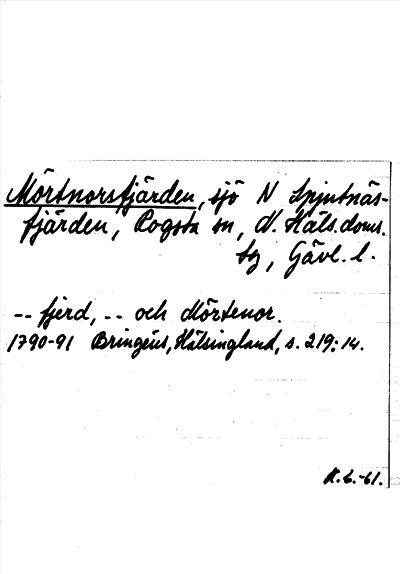 Mörtnorsfjärden, sjö N Spjutnäs-
fjärden, Rogsta sn, N. Häls. doms.
tg, Gävl. l.
-- fjerd, -- och Mörtenor.
1790-91 Bringéus, Hälsingland, s. 219: 14.
K.L.-61.